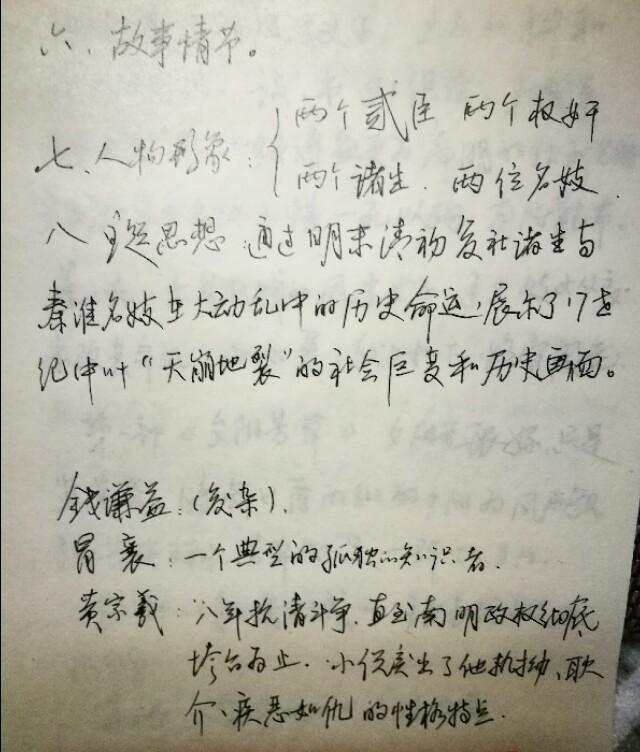 六、故事情节。
两个贰臣 两个权奸
七、人物形象:
两个诸生. 两位名妓.
八 主题思想 通过明末清初复社诸生与
秦淮名妓在大动乱中的历史命运,展示了17世
纪中叶“天崩地裂”的社会巨变和历史画面。
钱谦益:(复杂).
冒襄:一个典型的孤独的知识者.
黄宗羲:八年抗清斗争,直至南明政权彻底
垮台为止.小说突出了他执拗、耿
介、疾恶如仇的性格特点.